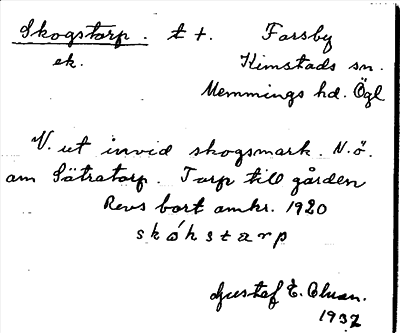 Skogstorp. t t. Farsby
ek. Kimstads sn.
Memmings hd. Ögl
V. ut invid skogsmark. N.ö.
om Sätratorp. Torp till gården
Revs bort omkr. 1920
skóhstarp
Gustaf E.
1932